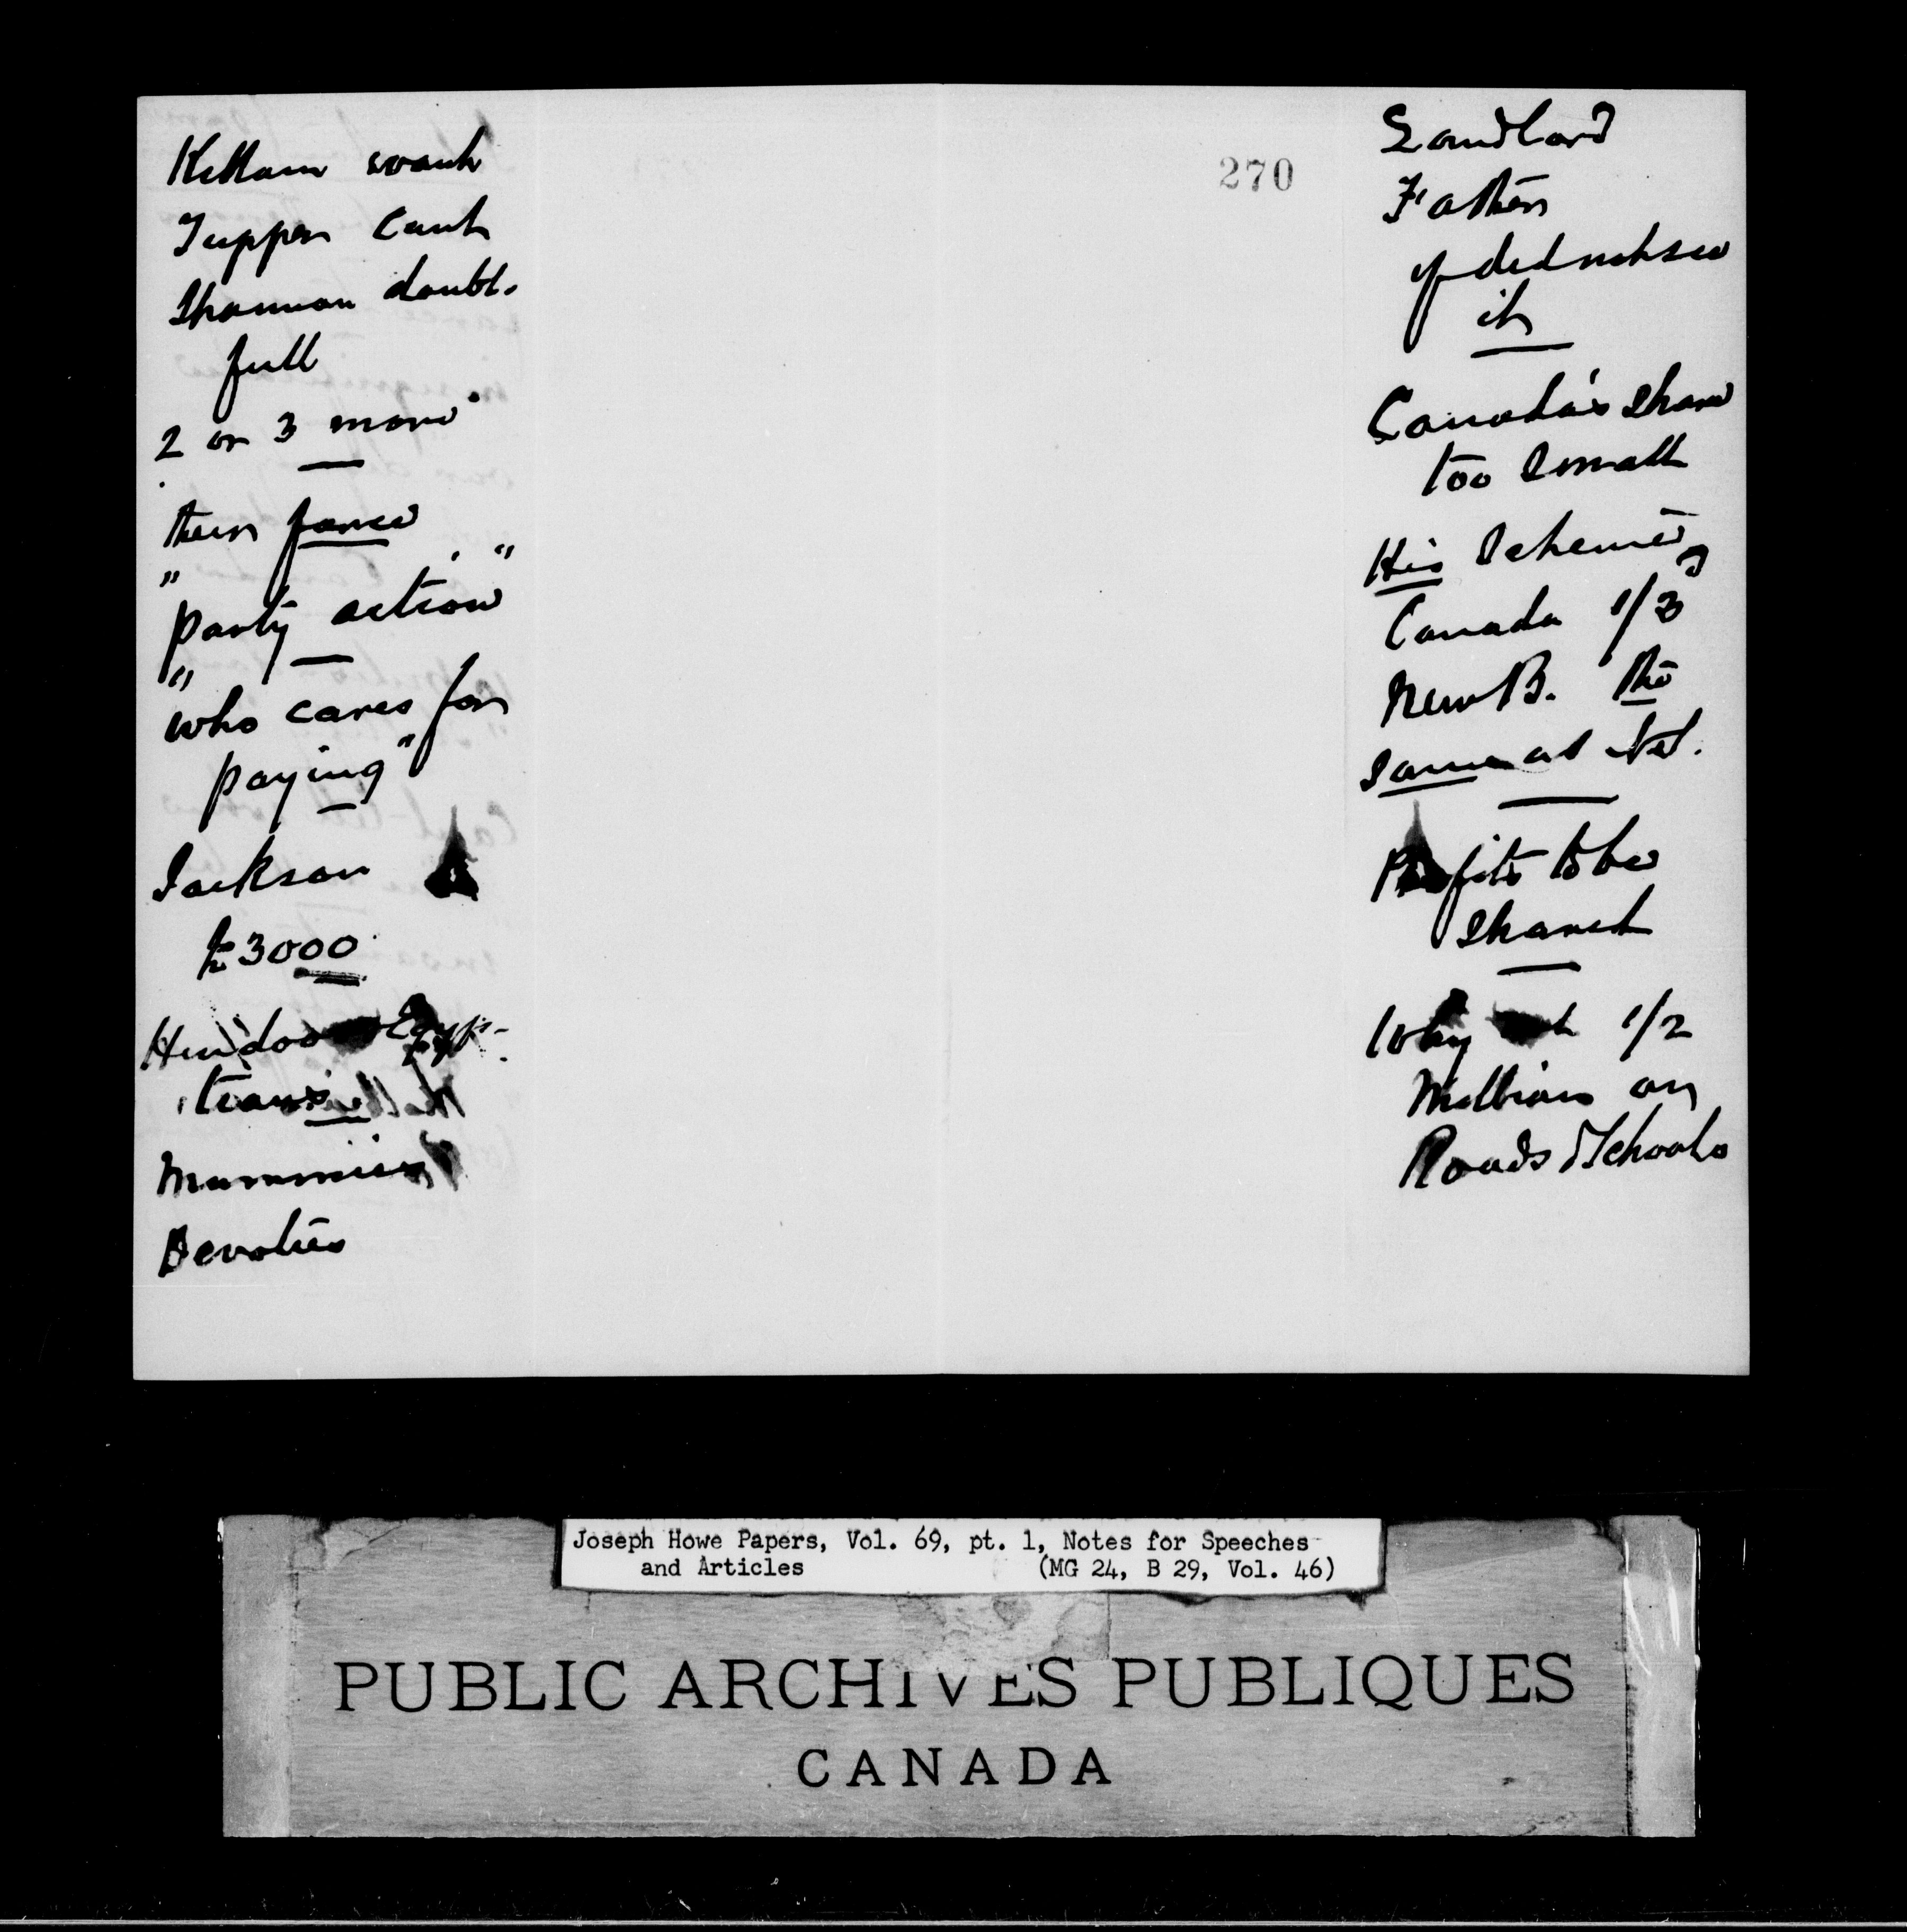 Killam wont
Tupper cant
Shannon doubt-
full
2 or 3 more
their farce
"
party action"
"
who cares for
paying"
Jackson
£3000
Hindoo Egyp-
tians
Mummies
Devotees
270
Landlord
Father
if did not see
it
Canada's Share
too Small
His Scheme
Canada 1/3
New B. the
same as
Profits to be
Shared
Why not 1/2
Million on
Roads & Schools
Joseph Howe Papers, Vol. 69, pt. 1, Notes for Speeches
and Articles (MG 24, B 29, Vol. 46)
PUBLIC ARCHIVES PUBLIQUES
CANADA